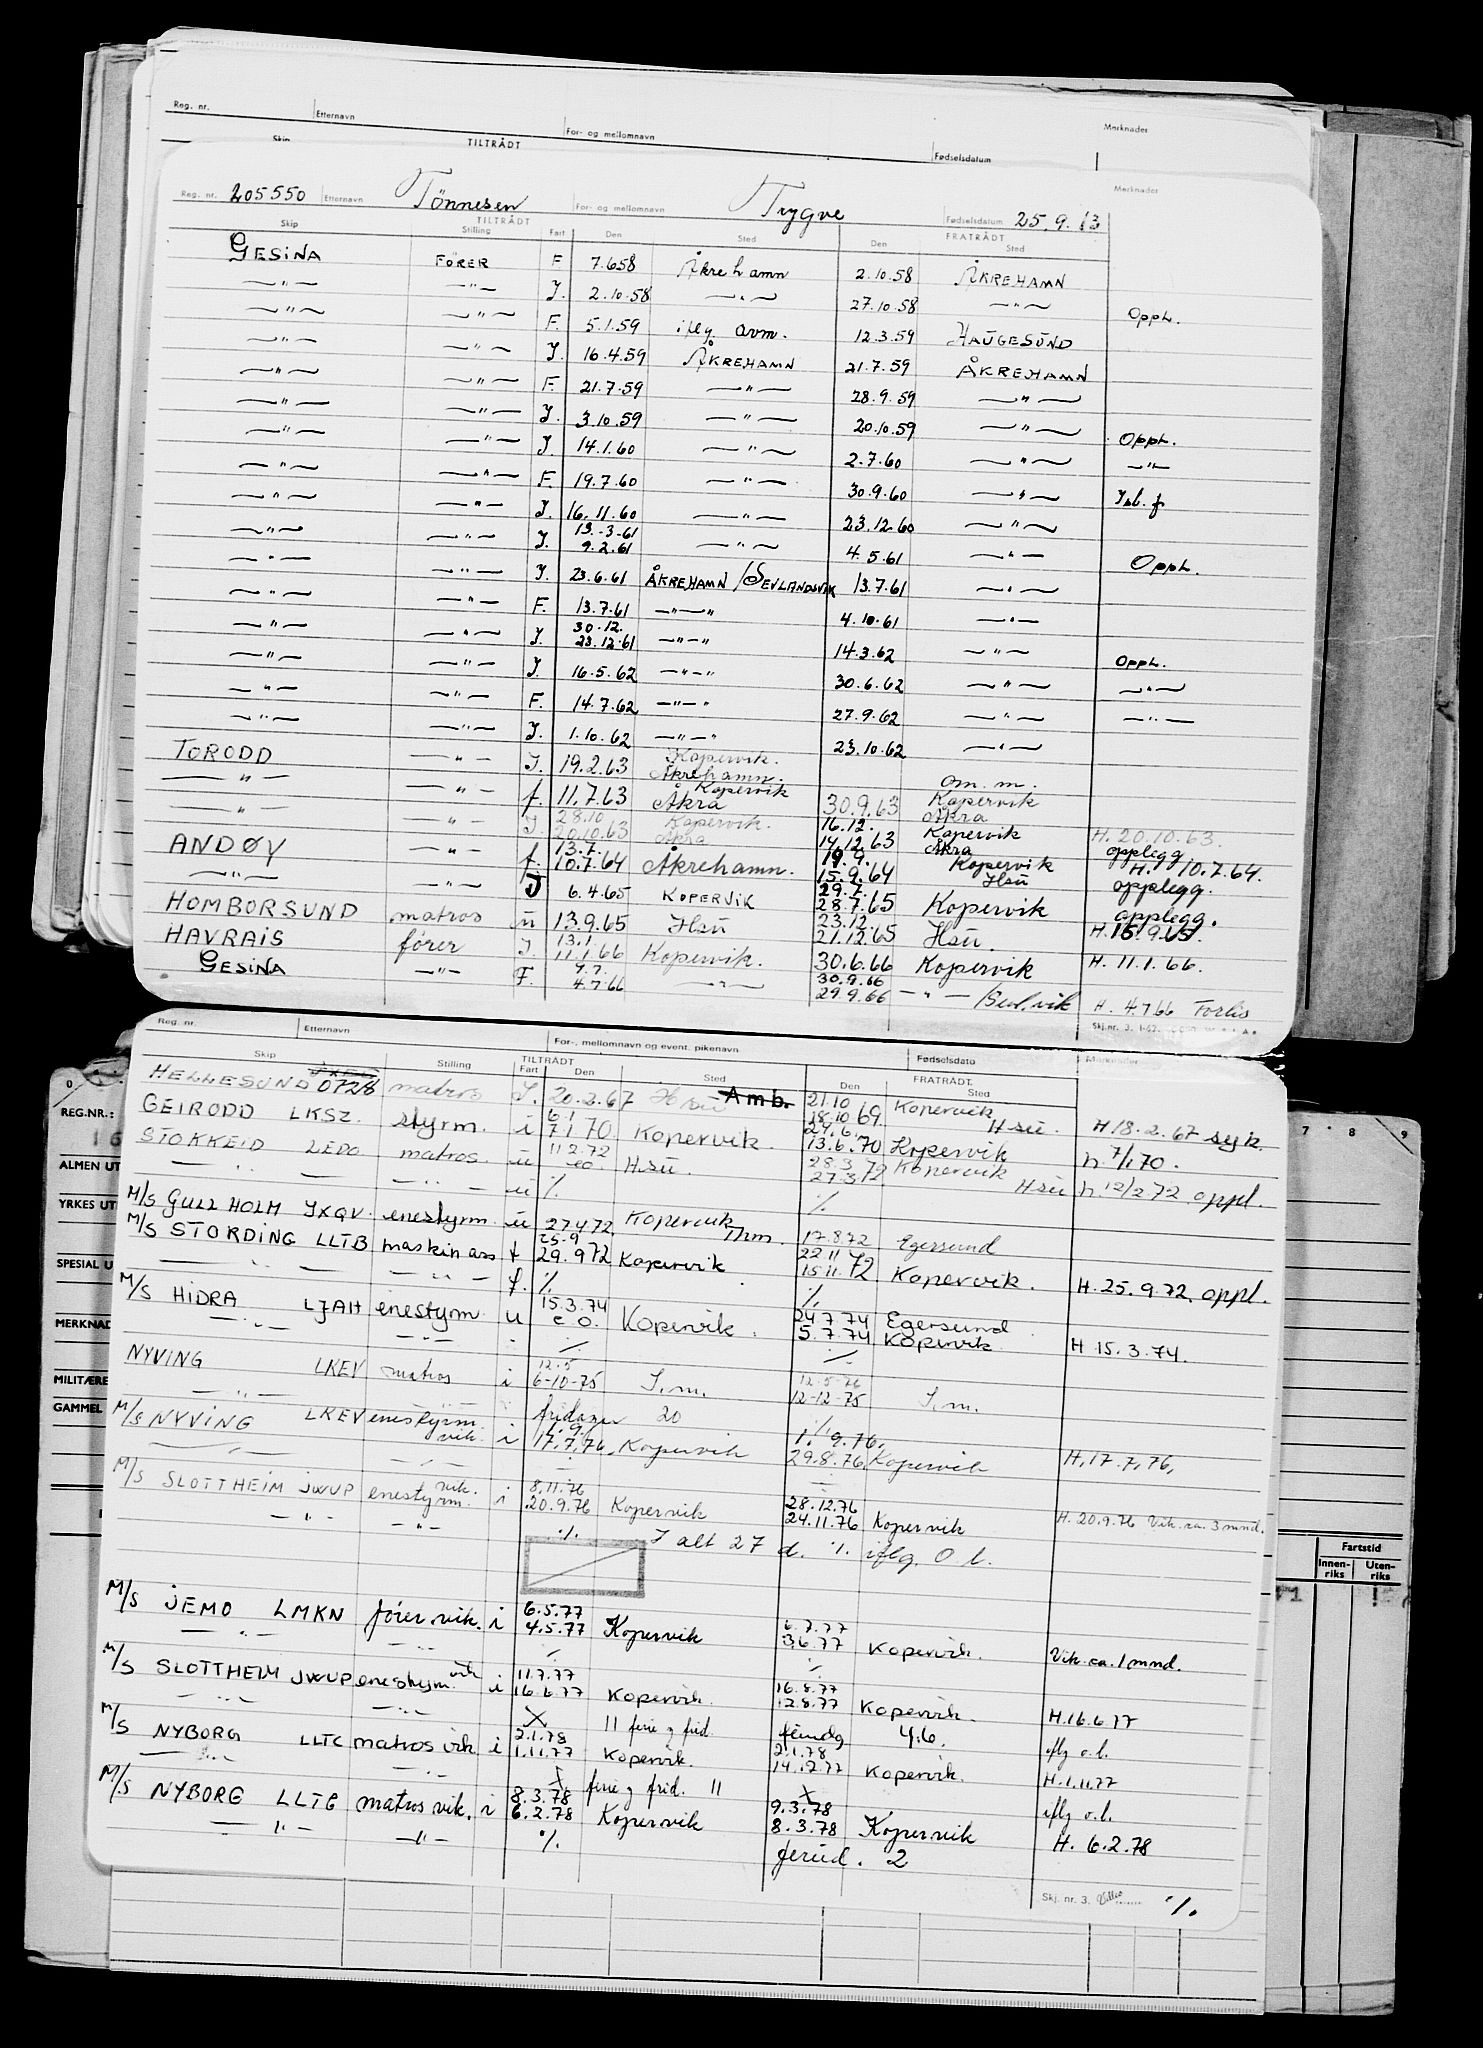 Reg. nr. Etternavn For- og mellomnavn Merknader
Skip TILTRÅDT Fødselsdatum
Reg. nr. 205550 Etternavn Tönnesen For- og mellomnavn Trygve Fødselsdatum 25.9.13 Merknader
Skip TILTRÅDT FRATRÅDT
Stilling Fart Den Sted Den Sted
GESINA FÖRER F 7.6.58 Åkrehamn 2.10.58 ÅKREHAMN
—"— —"— I. 2.10.58 —"— 27.10.58 —"— Opph.
—"— —"— F. 5.1.59 iflg. avm. 12.3.59 HAUGESUND
—"— —"— I. 16.4.59 ÅKREHAMN 21.7.59 ÅKREHAMN
—"— —"— F. 21.7.59 —"— 28.9.59 —"—
—"— —"— I. 3.10.59 —"— 20.10.59 —"— Opph.
—"— —"— I. 14.1.60 —"— 2.7.60 —"— —"—
—"— —"— F. 19.7.60 —"— 30.9.60 —"—
—"— —"— I. 16.11.60 —"— 23.12.60 —"—
13.-3-61
—"— —"— I. 9.2.61 —"— 4.5.61 —"— Opph.
—"— —"— I. 23.6.61 ÅKREHAMN/SEVLANDSVIK 13.7.61 —"—
—"— —"— F. 13.7.61 —"—" 4.10.61 —"—
30.12.
—"— —"— I. 23.12.61 —"—" 14.3.62 —"— Opph.
—"— —"— I. 16.5.62 —"—" 30.6.62 —"— —"—
—"— —"— F. 14.7.62 —"—" 27.9.62 —"— —"—
—"— —"— I. 1.10.62 —"—" 23.10.62 —"—
TORODD —"— I. 19.2.63 Kopervik. Åkrehamn. om. m.
—"— —"— f. 11.7.63 Kopervik Åkra 30.9.63 Kopervik Åkra
28.10 16.12.
—"— —"— I. 20.10.63 Kopervik. Åkra 14.12.63 Kopervik Åkra H. 20.10.63. opplegg
13.7. 19.9.
ANDØY —"— f. 10.7.64 Åkrehamn. 15.9.64 Kopervik Hsu H. 10.7.64. opplegg.
29.7.
—"— —"— I 6.4.65 KOPERVIK 28.7.65 Kopervik opplegg.
23.12.
HOMBORSUND matros u 13.9.65 Hsu 21.12.65 Hsu. H. 15.9.65.
13.1
HAVRAIS fører I. 11.1.66 Kopervik. 30.6.66 Kopervik H. 11.1.66.
7.7. 30.9.66
GESINA —"— F. 4.7.66 —"— 29.9.66 —"— H. 4.7.66 Forlis
Skj.nr. 3. 1-62.
Reg. nr. Etternavn For-, mellomnavn og event. pikenavn Fødselsdato Merknader
Skip Stilling TILTRÅDT FRATRÅDT.
Fart Den Sted Den Sted
HELLESUND 0728 matros I. 20.2.67 Hsu Amb. 21.10 18.10 69. Kopervik Hsu. H 18.2.67 syk.
6.1 24.6.
GEIRODD LKSZ. styrm. i 7.1.70 Kopervik. 13.6.70 Kopervik h. 7/1 70.
11.2.72 28.3
STOKKEID LEDO matros. u eo. Hsu. 27.3.72 Kopervik Hsu h. 12/2 72 oppl.
—"— —"— u ·/. ·/.
M/S GULLHOLM JXQV. enestyrm. u 27.4.72 Kopervik 17.8.72 Egersund
25-9 22 11
M/S STORDING LLTB maskin ass f 29.9 72 Kopervik 15.11.72 Kopervik. H. 25.9.72. oppl.
—"— —"— f. ·/. ·/.
15.3.74 24.7.74 Egersund
M/S HIDRA LJAH enestyrm. u e.o. Kopervik. 5.7.74 Kopervik H 15.3.74.
—"— ·/. ·/.
12.5 12-5-76
NYVING LKEV matros i 6-10-75 I.m. 12-12-75 I.m.
—"— fridager 20 ·/.
1.9.
M/S NYVING LKEV enestyrm. vik. i 17.7.76. Kopervik 1.9.76. 29.8.76. Kopervik H. 17.7.76.
—"— —"—
8.11.76 28.12.76
M/S SLOTTHEIM JWUP enestyrm. vik. i 20.9.76 Kopervik 24.11.76 Kopervik H. 20.9.76 Vik. ca. 3 mnd.
—"— —"— ·/. I alt 27 d. ·/. iflg. O.l.
6.5.77 6.7.77
M/S JEMO LMKN fører vik. i 4.5.77 Kopervik 3.6.77 Kopervik. Vik. ca. 1 mnd.
—"— —"— ·/. ·/.
11.7.77 16.8.77
M/S SLOTTHEIM JWUP enestyrm. vik i 16.6.77 Kopervik. 12.8.77 Kopervik. H. 16.6.77
—"— —"— X 11 ferie g frid. iflg o.l.
2.1.78 2.1.78
M/S NYBORG LLTC matros vik i 1.11.77 Kopervik. 14.12.77 Kopervik. H. 1.11.77
—"— —"— X ferie g frid. 11 X iflg o.l.
8.3.78 9.3.78
M/S NYBORG LLTG matros vik. i 6.2.78 Kopervik 8.3.78 Kopervik H. 6.2.78
—"— —"— ·/. 2
Skj. nr. 3. ·/.
REG.NR.:
ALMEN UT
YRKES UT
SPECIAL U
MERKNAD
MILITÆRE
GAMMEL
7 8 9
Fartstid
Innen-riks Uten-riks